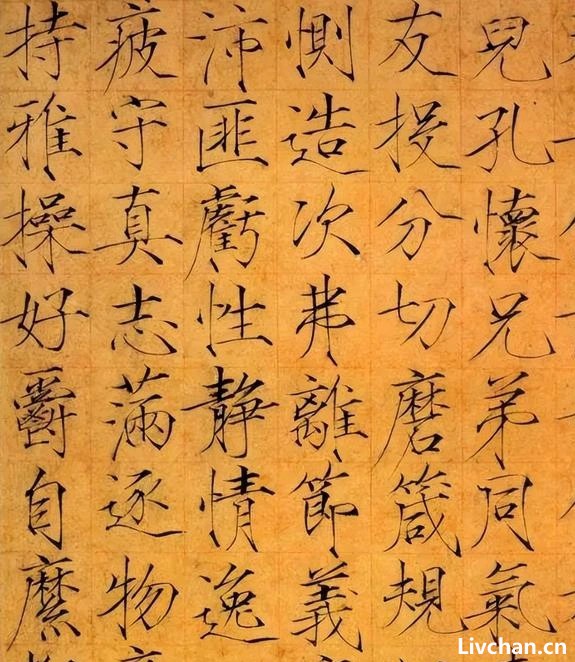 兒孔懷兄弟同氣
友投分切磨箴規
惻造次弗離節義
沛匪虧性靜情逸
疲守真志滿逐物
持雅操好爵自縻
Livchan.cn